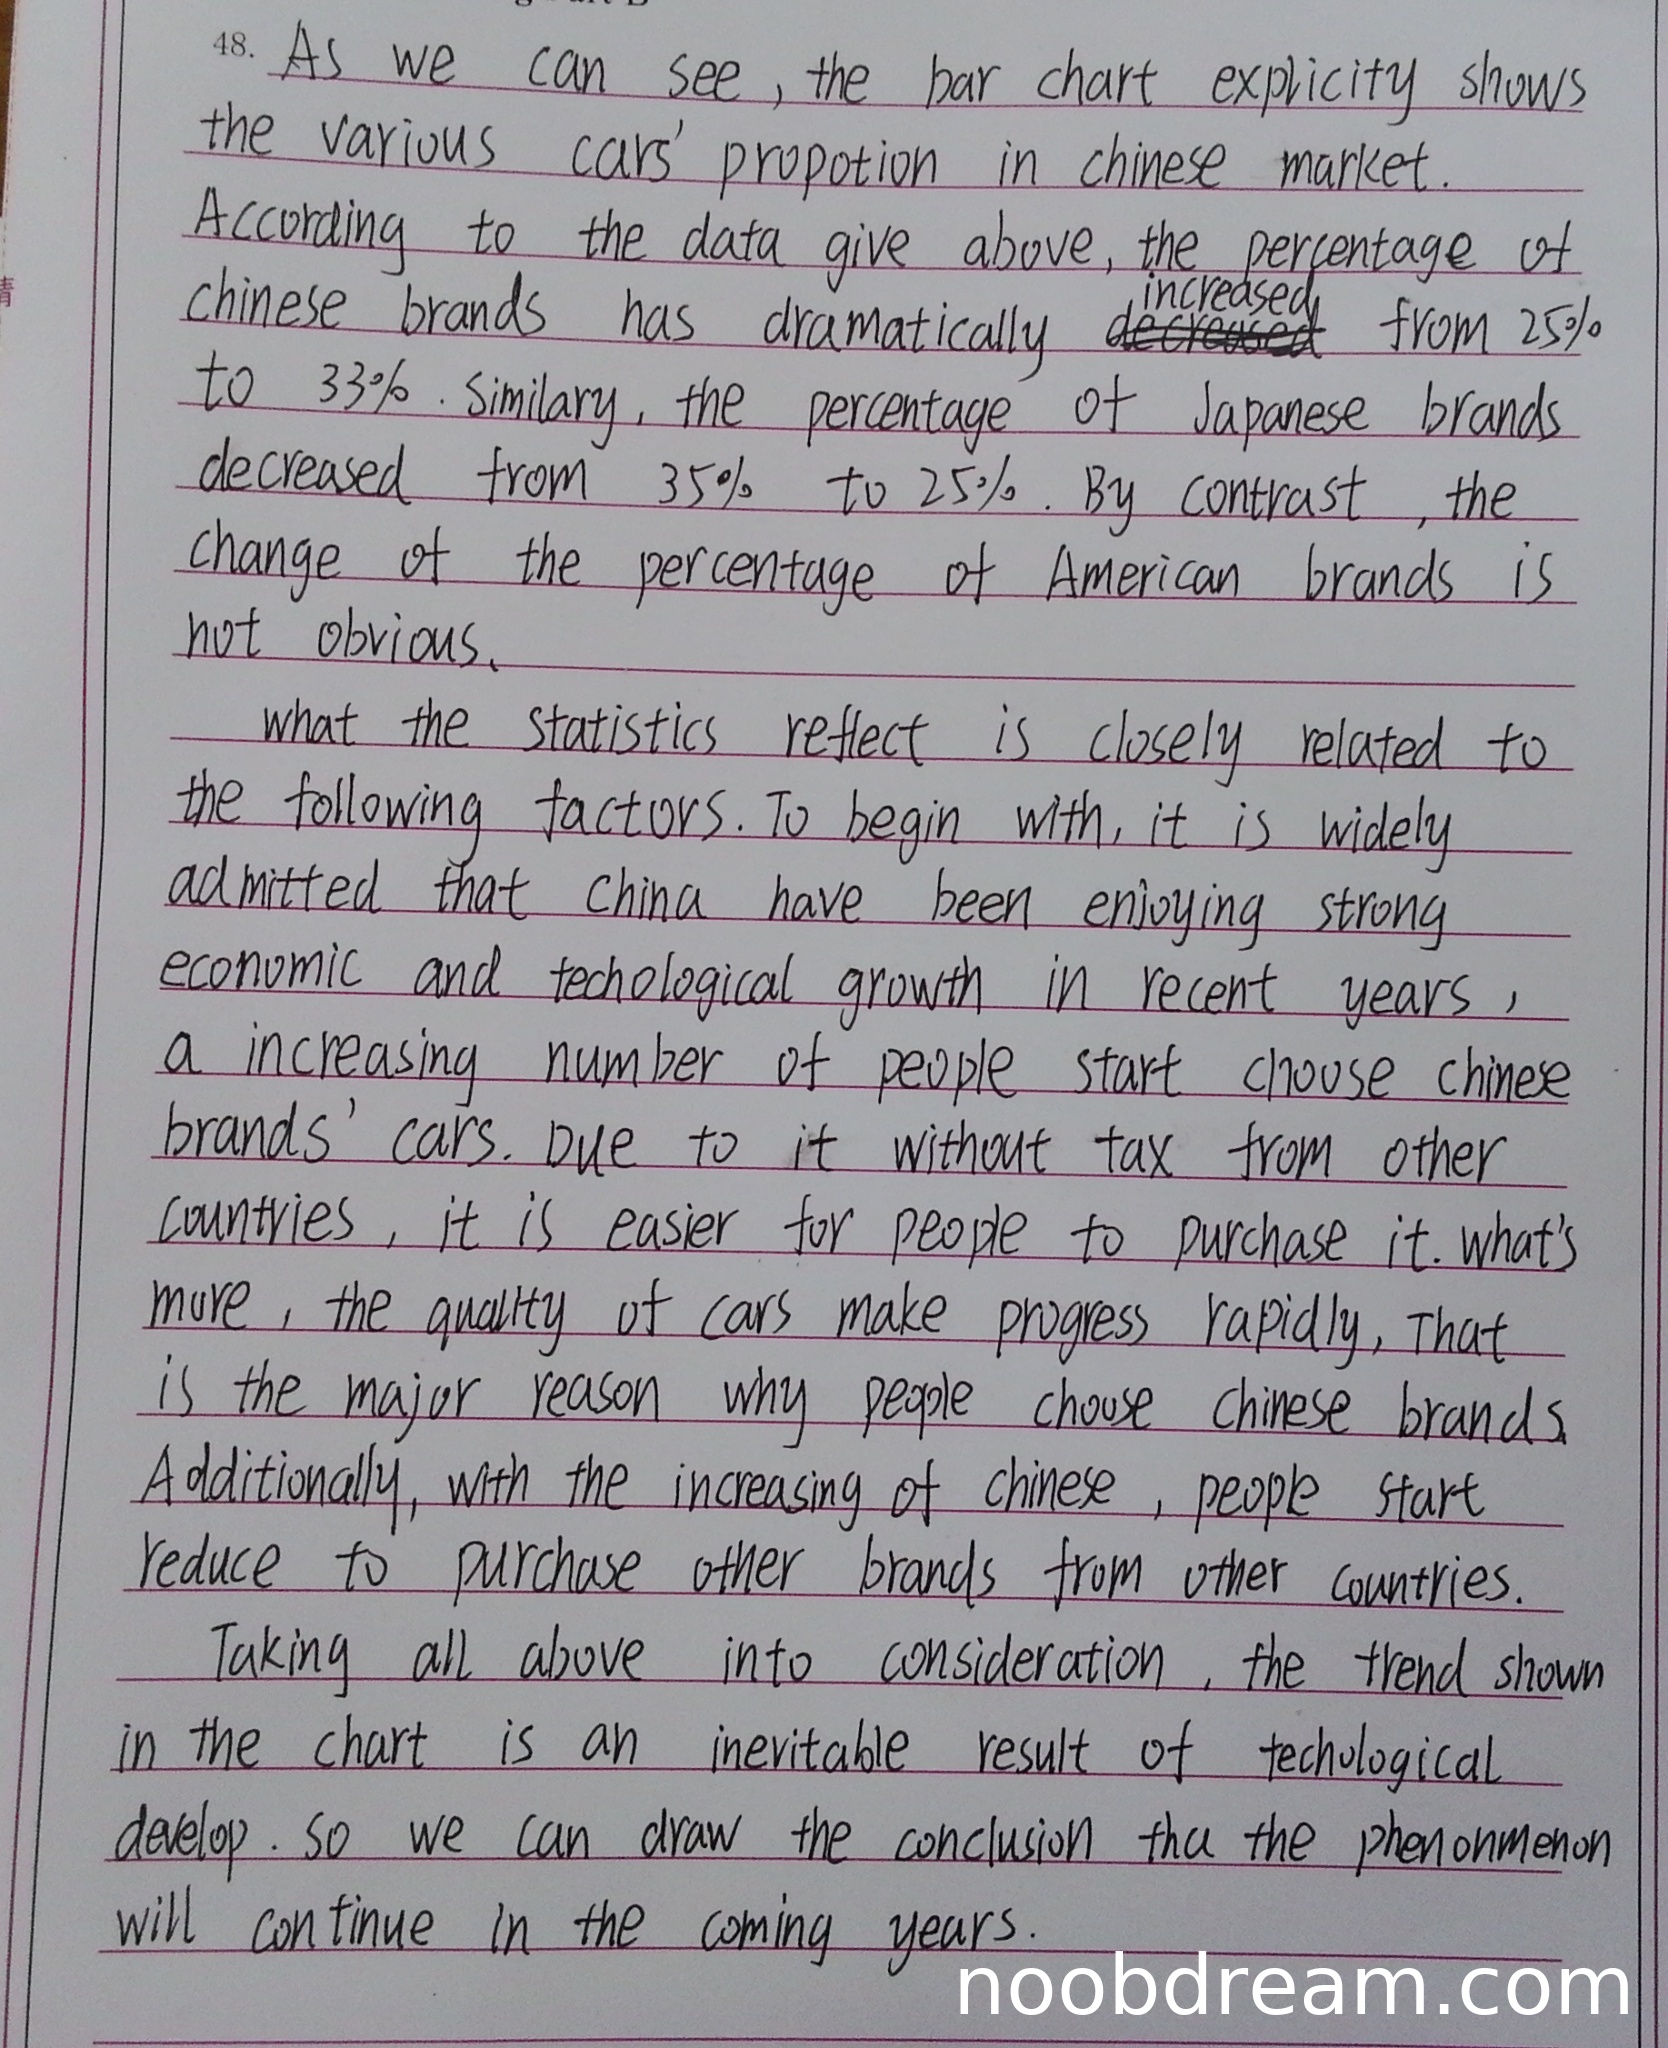 48. As we can see, the bar chart explicity shows
the various cars' propotion in chinese market.
According to the data give above, the percentage of
chinese brands has dramatically increased from 25%
to 33%. Similary, the percentage of Japanese brands
decreased from 35% to 25%. By contrast, the
change of the percentage of American brands is
not obvious.
what the statistics reflect is closely related to
the following factors. To begin with, it is widely
admitted that China have been enjoying strong
economic and techological growth in recent years,
a increasing number of people start choose chinese
brands' cars. Due to it without tax from other
countries, it is easier for people to purchase it. what's
more, the quality of cars make progress rapidly, That
is the major reason why people choose chinese brands.
Additionally, with the increasing of chinese, people start
reduce to purchase other brands from other countries.
Taking all above into consideration, the trend shown
in the chart is an inevitable result of techological
develop. So we can draw the conclusion tha the phenonmenon
will continue in the coming years.
noobdream.com